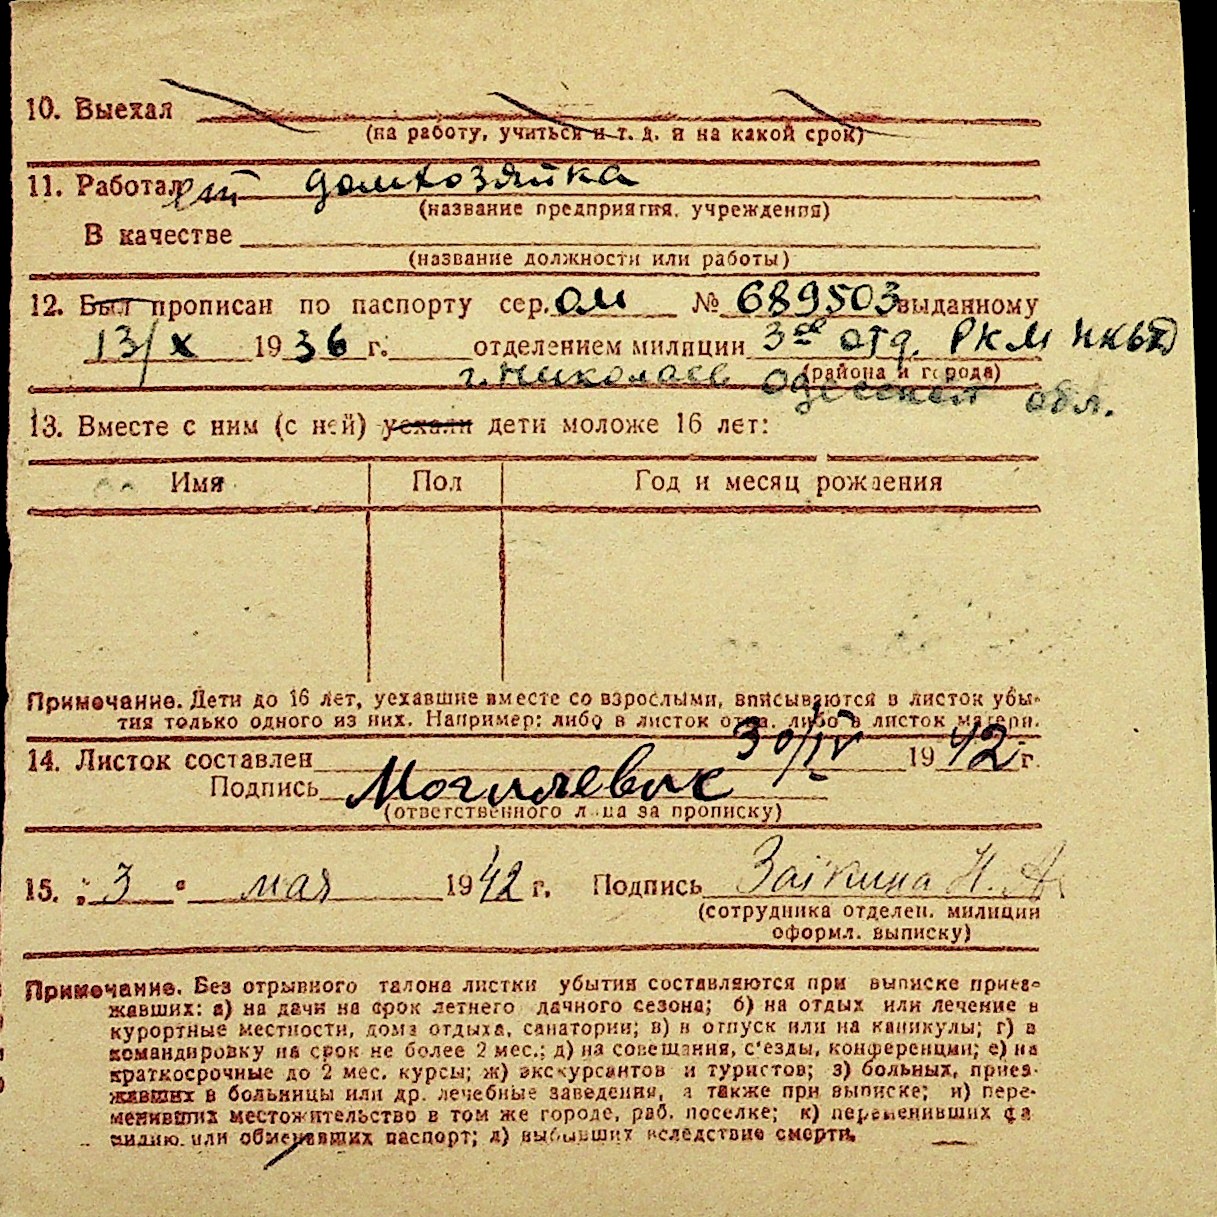 10. Выехал
(на работу, учиться и т. д. и на какой срок)
11. Работает домхозяйка
(название предприятия, учреждения)
В качестве
(название должности или работы)
12. Был прописан по паспорту сер. ОМ № 689503 выданному
13/X 1936 г. отделением милиции 3ье отд. РКМ НКВД
(района и города)
г. Николаев Одесской обл.
13. Вместе с ним (с ней) уехали дети моложе 16 лет:
Имя Пол Год и месяц рождения
Примечание. Дети до 16 лет, уехавшие вместе со взрослыми, вписываются в листок убы-
тия только одного из них. Например: либо в листок отца, либо в листок матери.
14. Листок составлен 30/IV 1942 г.
Подпись Могилевас
(ответственного лица за прописку)
15. „3“ мая 1942 г. Подпись Заікина Н. А.
(сотрудника отделен. милиции
оформл. выписку)
Примечание. Без отрывного талона листки убытия составляются при выписке приез-
жавших: а) на дачи на срок летнего дачного сезона; б) на отдых или лечение в
курортные местности, дома отдыха, санатории; в) в отпуск или на каникулы; г) в
командировку на срок не более 2 мес.; д) на совещания, с'езды, конференции; е) на
краткосрочные до 2 мес. курсы; ж) экскурсантов и туристов; з) больных, приез-
жавших в больницы или др. лечебные заведения, а также при выписке; и) пере-
менивших местожительство в том же городе, раб. поселке; к) переменивших фа-
милию или обменявших паспорт; л) выбывших вследствие смерти.